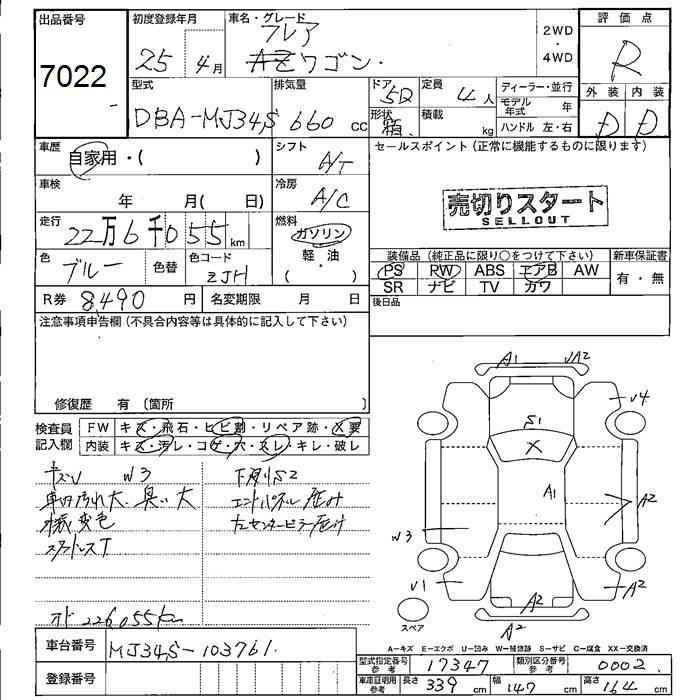 出品番号
7022
初度登録年月
25 4月
車名・グレード
フレア
AZワゴン
2WD
・
4WD
評価点
R
型式
DBA-MJ34S
排気量
660 cc
ドア
5D
形状
箱
定員
4人
積載
kg
ディーラー・並行
モデル年式 年
ハンドル 左・右
外装 内装
D D
車歴
自家用・( )
シフト
A/T
セールスポイント(正常に機能するものに限ります)
車検
年 月( 日)
冷房
A/C
売切りスタート
SELLOUT
走行
22万6千055km
燃料
ガソリン
軽・油
・
色
ブルー
色替
色コード
ZJH
装備品(純正品に限り○をつけて下さい)
PS RW ABS エアB AW
SR ナビ TV カワ
新車保証書
有・無
R券 8,490 円
名変期限 月 日
後日品
注意事項申告欄(不具合内容等は具体的に記入して下さい)
修復歴 有〔箇所 〕
検査員記入欄
FW キズ・飛石・ヒビ割・リペア跡・X要
内装 キズ・汚レ・コゲ・穴・スレ・キレ・破レ
キズU W3
車内汚れ大、臭い大
様変色
スタッドレスT
オド226,055km
下廻りS2
エンドパネル歪み
左センターピラー歪み
A1
UA2
U4
S1
X
A1
A2
W3
U1
A2
A2
A2
スペア
A-キズ E-エクボ U-凹み W-補修跡 S-サビ C-腐食 XX-交換済
車台番号
MJ34S-103761
登録番号
型式指定番号 参考
17347
類別区分番号 参考
0002
車庫証明用 参考
長さ 339 cm
幅 147 cm
高さ 164 cm